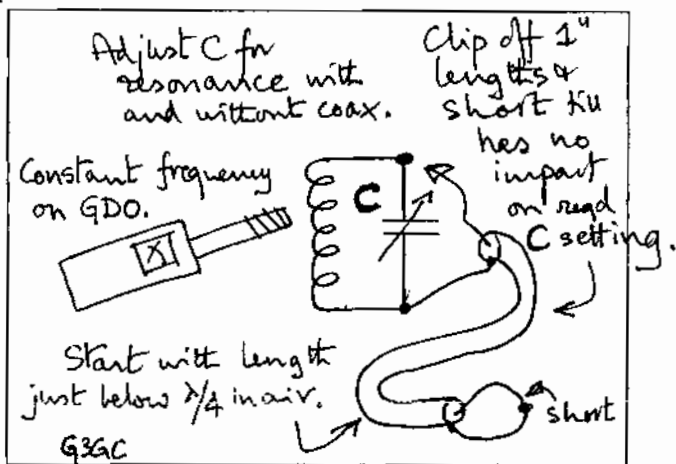 Adjust C for
resonance with
and without coax.
Clip off 1"
lengths &
short till
has no
impact
on read
C setting.
Constant frequency
on GDO.
C
Start with length
just below λ/4 in air.
short
G3GC